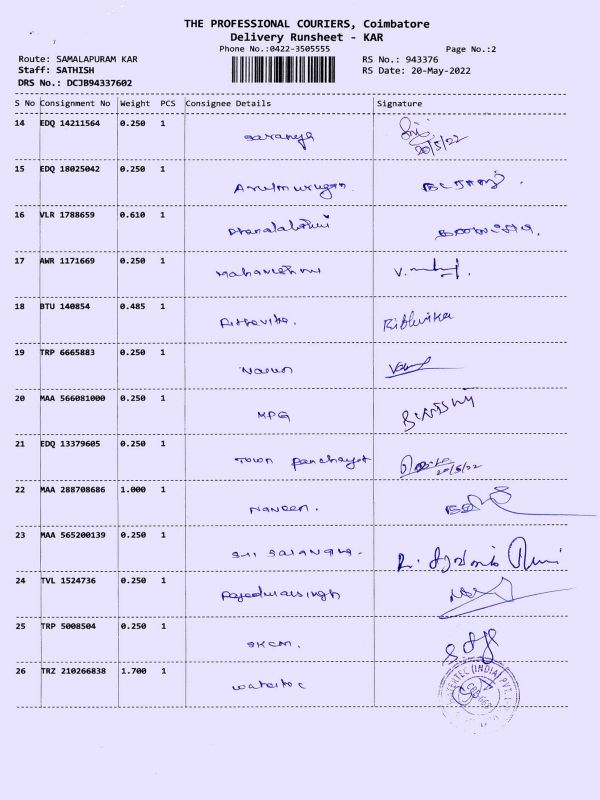 THE PROFESSIONAL COURIERS, Coimbatore
Delivery Runsheet - KAR
Phone No.:0422-3505555 Page No.:2
Route: SAMALAPURAM KAR RS No.: 943376
Staff: SATHISH RS Date: 20-May-2022
DRS No.: DCJB94337602
S No Consignment No Weight PCS Consignee Details Signature
14 EDQ 14211564 0.250 1 Saranya 20/5/22
15 EDQ 18025042 0.250 1 Arulmurugan
16 VLR 1788659 0.610 1 Dhanalakshmi
17 AWR 1171669 0.250 1 Mahavishnu
18 BTU 140854 0.485 1 Rithvika
19 TRP 6665883 0.250 1
20 MAA 566081000 0.250 1 MPG
21 EDQ 13379605 0.250 1 Town Panchayat 20/5/22
22 MAA 288708686 1.000 1 Naveen.
23 MAA 565200139 0.250 1 Sri
24 TVL 1524736 0.250 1
25 TRP 5008504 0.250 1 SKCM.
26 TRZ 210266838 1.700 1 Watertec
WATERTEC (INDIA) PVT.